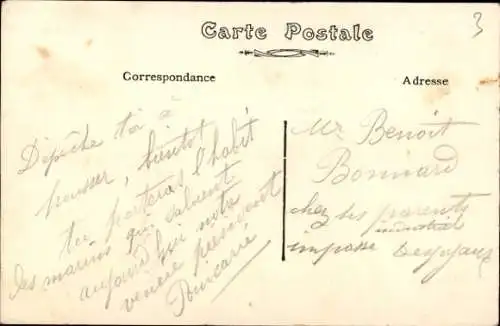 Carte Postale
3
Correspondance
Adresse
Dépêche toi à
pousser, bientot
tu porteras l'habit
des marins qui saluent
aujourd'hui notre
vénéré président
Mr Benoit
Bonnard
chez ses parents
industriel
impasse